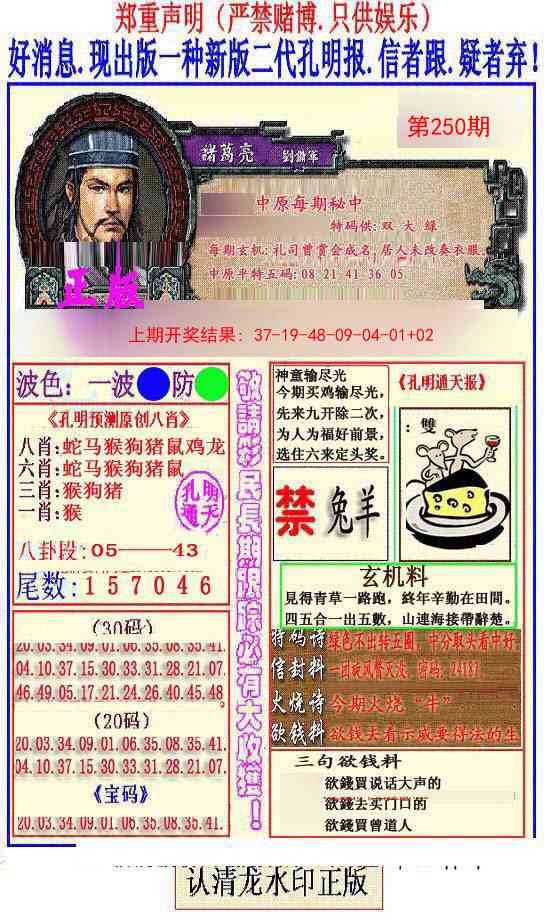 郑重声明（严禁赌博.只供娱乐）
好消息.现出版一种新版二代孔明报.信者跟.疑者弃！
第250期
諸葛亮 劉備軍
中原每期秘中
特码供:双 大 綠
每期玄机:礼司曾赏会成名,居人未改奏衣服.
中原平特五码:08 21 41 36 05
正版
上期开奖结果：37-19-48-09-04-01+02
波色：一波 防
《孔明预测原创八肖》
八肖:蛇马猴狗猪鼠鸡龙
六肖:蛇马猴狗猪鼠
三肖:猴狗猪
一肖:猴
孔明
通天
八卦段:05——43
尾数:157046
(30码)
20.03.34.09.01.06.35.08.35.41.
04.10.37.15.30.33.31.28.21.07.
46.49.05.17.21.24.26.40.45.48.
(20码)
20.03.34.09.01.06.35.08.35.41.
04.10.37.15.30.33.31.28.21.07.
《宝码》
20.03.34.09.01.06.35.08.35.41.
敬請彩民長期跟踪必有大收獲！
神童输尽光
今期买鸡输尽光,
先来九开除二次,
为人为福好前景,
选住六来定头奖。
《孔明通天报》
：雙
禁 兔羊
玄机料
見得青草一路跑，終年辛勤在田間。
四五合一出五數，山連海接帶辭楚。
特码诗 绿色不出转五圈，中分取头看中好
信封料
火烧诗 今期火烧“牛”
欲钱料 欲钱去看示威要得法的生
三句欲钱料
欲錢買说话大声的
欲錢去买门口的
欲錢買曾道人
认清龙水印正版